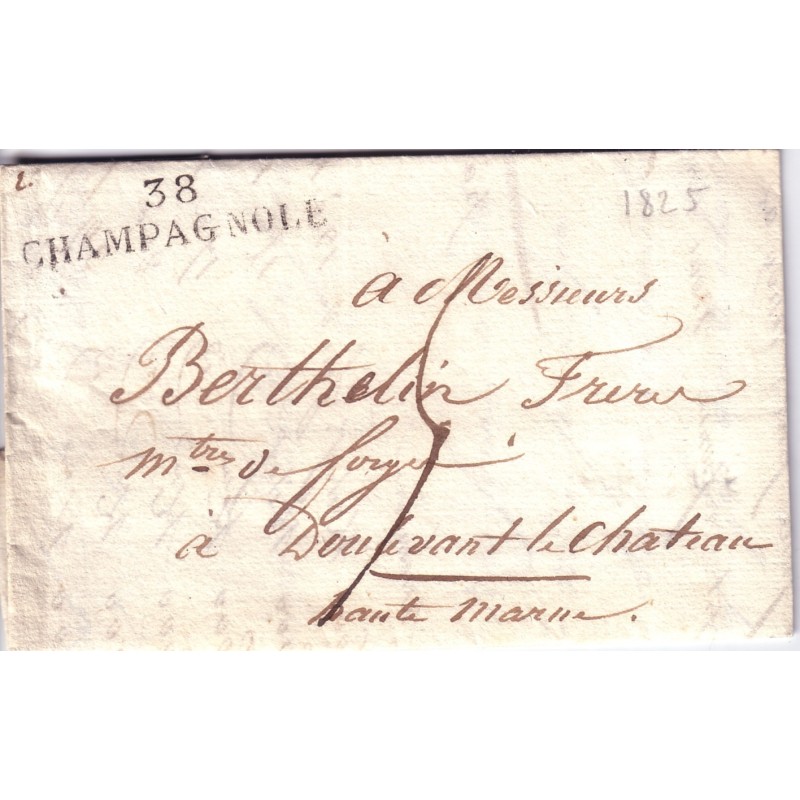 2.
38
CHAMPAGNOLE
1825
à Messieurs
Berthelin Freres
Mtres de forges
à Doulevant le Chateau
haute Marne.